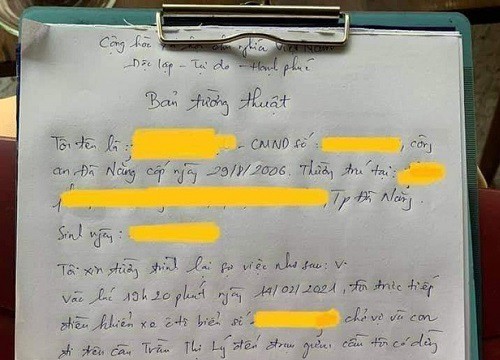 Cộng hòa xã hội chủ nghĩa Việt Nam
Độc lập - Tự do - Hạnh phúc
Bản tường thuật
Tôi tên là: - CMND số: , công
an Đà Nẵng cấp ngày 29/8/2006. Thường trú tại:
, Tp Đà Nẵng.
Sinh ngày:
Tôi xin tường trình lại sự việc như sau: V
vào lúc 19h20 phút ngày 14/02/2021, tôi trực tiếp
điều khiển xe ô tô biển số chở vợ và con
đi trên cầu Trần Thị Lý đến đoạn giữa cầu tôi có dừng